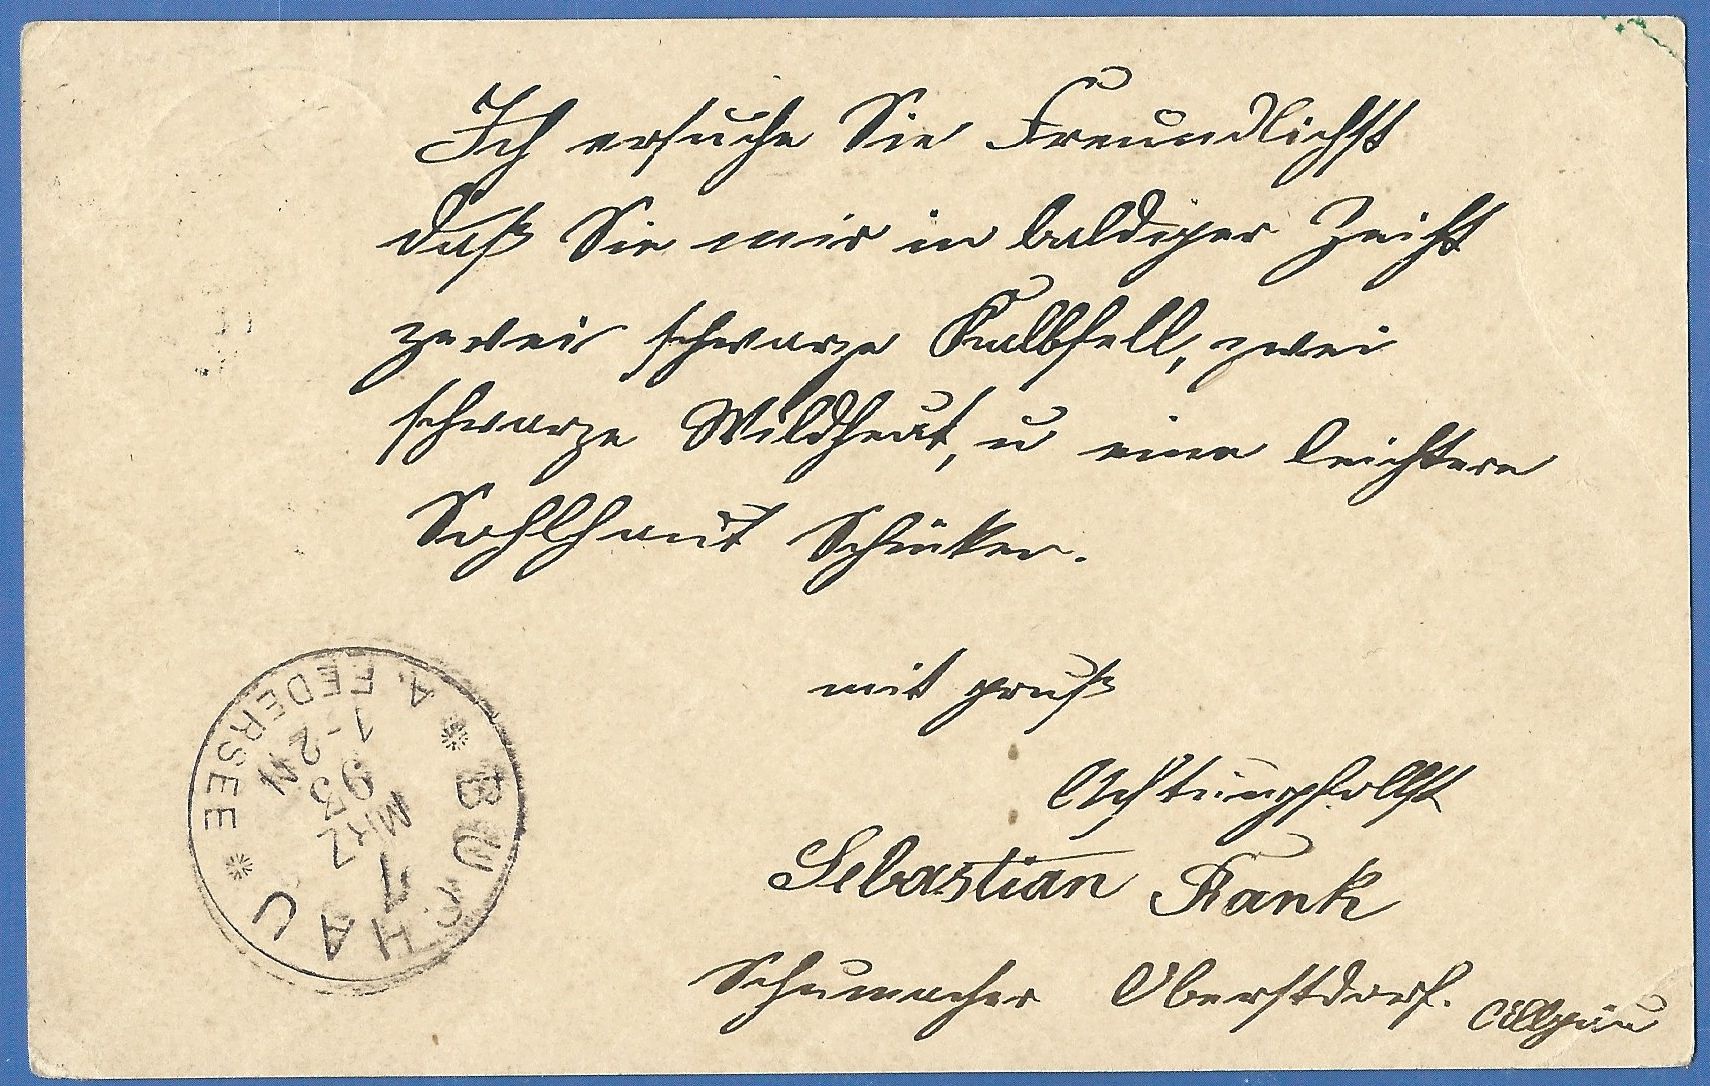 Ich ersuche Sie Freundlichst
daß Sie mir in baldiger Zeiht
zwei schwarze Kalbfell, zwei
schwarze Wildheut, u eine leichtere
Sohlhaut Schicken.
mit gruß
Achtungsfollst
Sebastian Rank
Schumacher Oberstdorf. Allgäu
BUCHAU
7
MRZ
93
1-2N
A. FEDERSEE